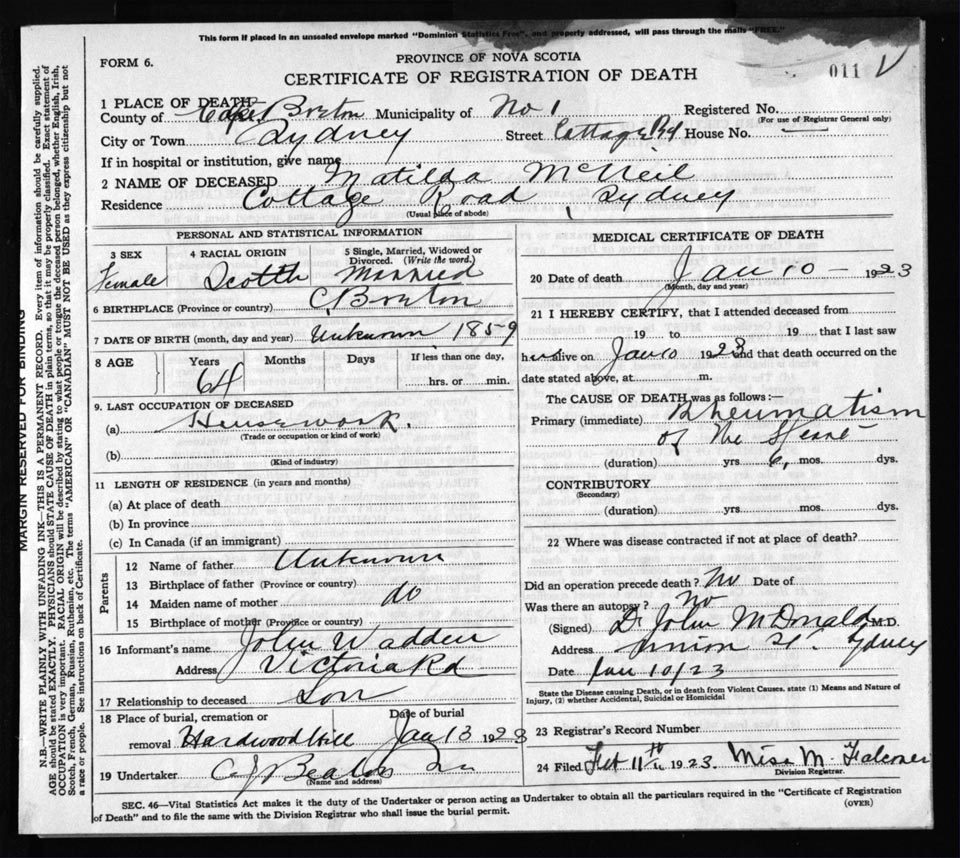 This form if placed in an unsealed envelope marked "Dominion Statistics Free", and properly addressed, will pass through the mails "FREE."
FORM 6.
PROVINCE OF NOVA SCOTIA
CERTIFICATE OF REGISTRATION OF DEATH
011 V
1 PLACE OF DEATH
County of Cape Breton Municipality of No 1 Registered No.
(For use of Registrar General only)
City or Town Sydney Street Cottage Rd House No.
If in hospital or institution, give name
2 NAME OF DECEASED Matilda McNeil
Residence Cottage Road, Sydney
(Usual place of abode)
PERSONAL AND STATISTICAL INFORMATION
3 SEX Female
4 RACIAL ORIGIN Scotth
5 Single, Married, Widowed or Divorced. (Write the word.) Married
6 BIRTHPLACE (Province or country) C. Breton
7 DATE OF BIRTH (month, day and year) Unknown 1859
8 AGE Years 64 Months Days If less than one day, hrs. or min.
9. LAST OCCUPATION OF DECEASED
(a) Housework.
(Trade or occupation or kind of work)
(b)
(Kind of industry)
11 LENGTH OF RESIDENCE (in years and months)
(a) At place of death
(b) In province
(c) In Canada (if an immigrant)
Parents
12 Name of father Unknown
13 Birthplace of father (Province or country)
14 Maiden name of mother do
15 Birthplace of mother (Province or country)
16 Informant's name John Wadden
Address Victoria Rd
17 Relationship to deceased Son
18 Place of burial, cremation or removal Hardwood Hill Date of burial Jan 13 1923
19 Undertaker C J Beaton
(Name and address)
MEDICAL CERTIFICATE OF DEATH
20 Date of death Jan 10 - 1923
(Month, day and year)
21 I HEREBY CERTIFY, that I attended deceased from
19 to 19 that I last saw
her alive on Jan 10 1923 and that death occurred on the
date stated above, at m.
The CAUSE OF DEATH was as follows:—
Primary (immediate) Rheumatism
of the Heart
(duration) yrs 6, mos. dys.
CONTRIBUTORY
(Secondary)
(duration) yrs. mos. dys.
22 Where was disease contracted if not at place of death?
Did an operation precede death? No Date of
Was there an autopsy? No
(Signed) Dr John McDonald M.D.
Address Union St. Sydney
Date Jan 10/23
State the Disease causing Death, or in death from Violent Causes, state (1) Means and Nature of
Injury, (2) whether Accidental, Suicidal or Homicidal
23 Registrar's Record Number
24 Filed Feb 11th 1923. Miss M. Falconer
Division Registrar.
SEC. 46—Vital Statistics Act makes it the duty of the Undertaker or person acting as Undertaker to obtain all the particulars required in the "Certificate of Registration
of Death" and to file the same with the Division Registrar who shall issue the burial permit.
(OVER)
MARGIN RESERVED FOR BINDING
N.B.—WRITE PLAINLY WITH UNFADING INK—THIS IS A PERMANENT RECORD. Every item of information should be carefully supplied.
AGE should be stated EXACTLY. PHYSICIANS should STATE CAUSE OF DEATH in plain terms, so that it may be properly classified. Exact statement of
OCCUPATION is very important. RACIAL ORIGIN will be described by stating to what people or tongue the deceased person belonged, whether English, Irish,
Scotch, French, German, Russian, Ruthenian, etc. The terms "AMERICAN" or "CANADIAN" MUST NOT BE USED as they express citizenship but not
a race or people. See instructions on back of Certificate.